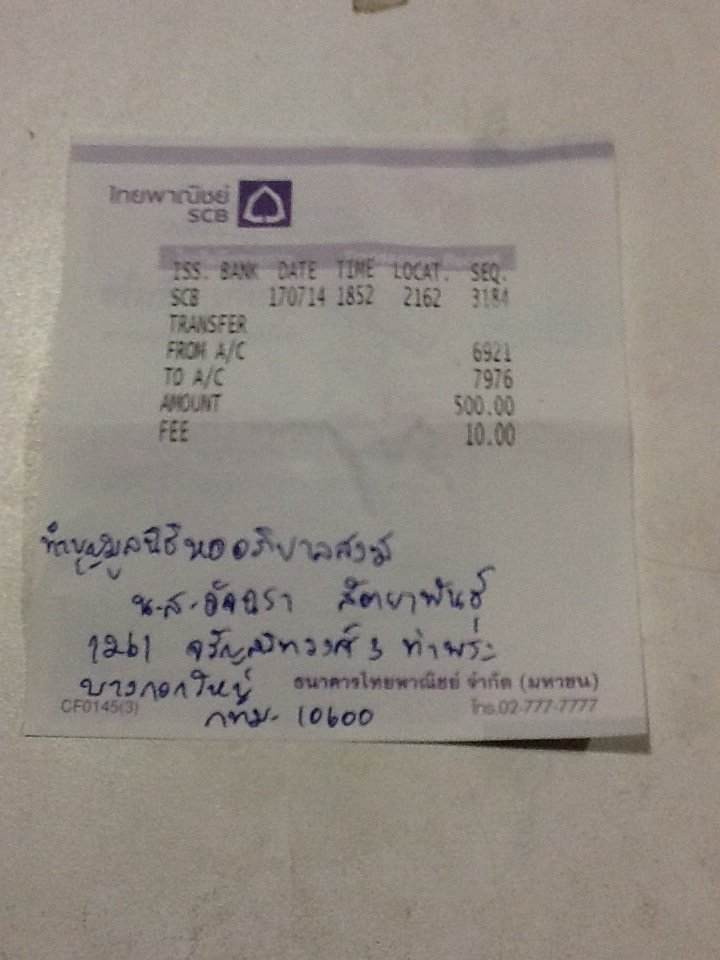 ไทยพาณิชย์
SCB
ISS. BANK DATE TIME LOCAT. SEQ.
SCB 170714 1852 2162 3184
TRANSFER
FROM A/C 6921
TO A/C 7976
AMOUNT 500.00
FEE 10.00
ทำบุญมูลนิธิหออภิบาลสงฆ์
น.ส.อัจฉรา สัตยาพันธ์
1261 จรัญสนิทวงศ์ 3 ท่าพระ
บางกอกใหญ่ ธนาคารไทยพาณิชย์ จำกัด (มหาชน)
CF0145(3) กทม. 10600 โทร.02-777-7777